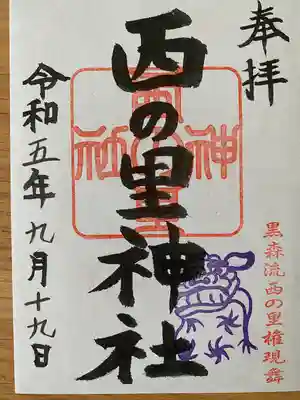 奉拝
西の里神社
令和五年九月十九日
西の里神社
黒森流西の里権現舞